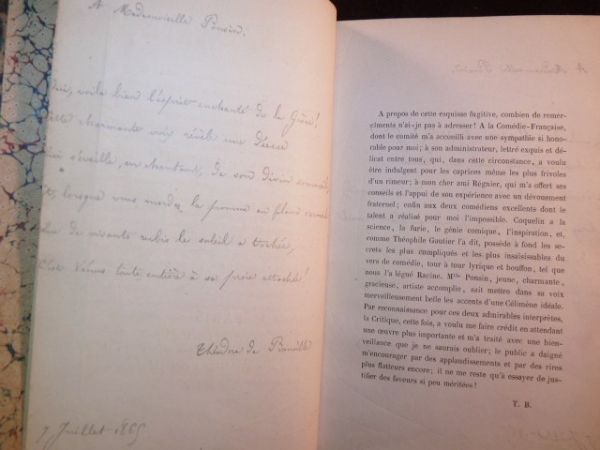 A Mademoiselle Ponsin.
Oui, voilà bien l'esprit enchanté de la Grèce!
Cette charmante voix révèle une Déesse
Qui s'éveille, en chantant, de son divin sommeil,
Et, lorsque vous mordez la pomme en
de vivants rubis le soleil a tachée,
C'est Vénus toute entière à sa proie attachée!
Théodore de Banville
7 Juillet
A propos de cette esquisse fugitive, combien de remer-
ciments n'ai-je pas à adresser! A la Comédie-Française,
dont le comité m'a accueilli avec une sympathie si hono-
rable pour moi; à son administrateur, lettré exquis et dé-
licat entre tous, qui, dans cette circonstance, a voulu
être indulgent pour les caprices même les plus frivoles
d'un rimeur; à mon cher ami Régnier, qui m'a offert ses
conseils et l'appui de son expérience avec un dévouement
fraternel; enfin aux deux comédiens excellents dont le
talent a réalisé pour moi l'impossible. Coquelin a la
science, la furie, le génie comique, l'inspiration, et,
comme Théophile Gautier l'a dit, possède à fond les se-
crets les plus compliqués et les plus insaisissables du
vers de comédie, tour à tour lyrique et bouffon, tel que
nous l'a légué Racine. Mlle Ponsin, jeune, charmante,
gracieuse, artiste accomplie, sait mettre dans sa voix
merveilleusement belle les accents d'une Célimène idéale.
Par reconnaissance pour ces deux admirables interprètes,
la Critique, cette fois, a voulu me faire crédit en attendant
une œuvre plus importante et m'a traité avec une bien-
veillance que je ne saurais oublier; le public a daigné
m'encourager par des applaudissements et par des rires
plus flatteurs encore; il ne me reste qu'à essayer de jus-
tifier des faveurs si peu méritées!
T. B.